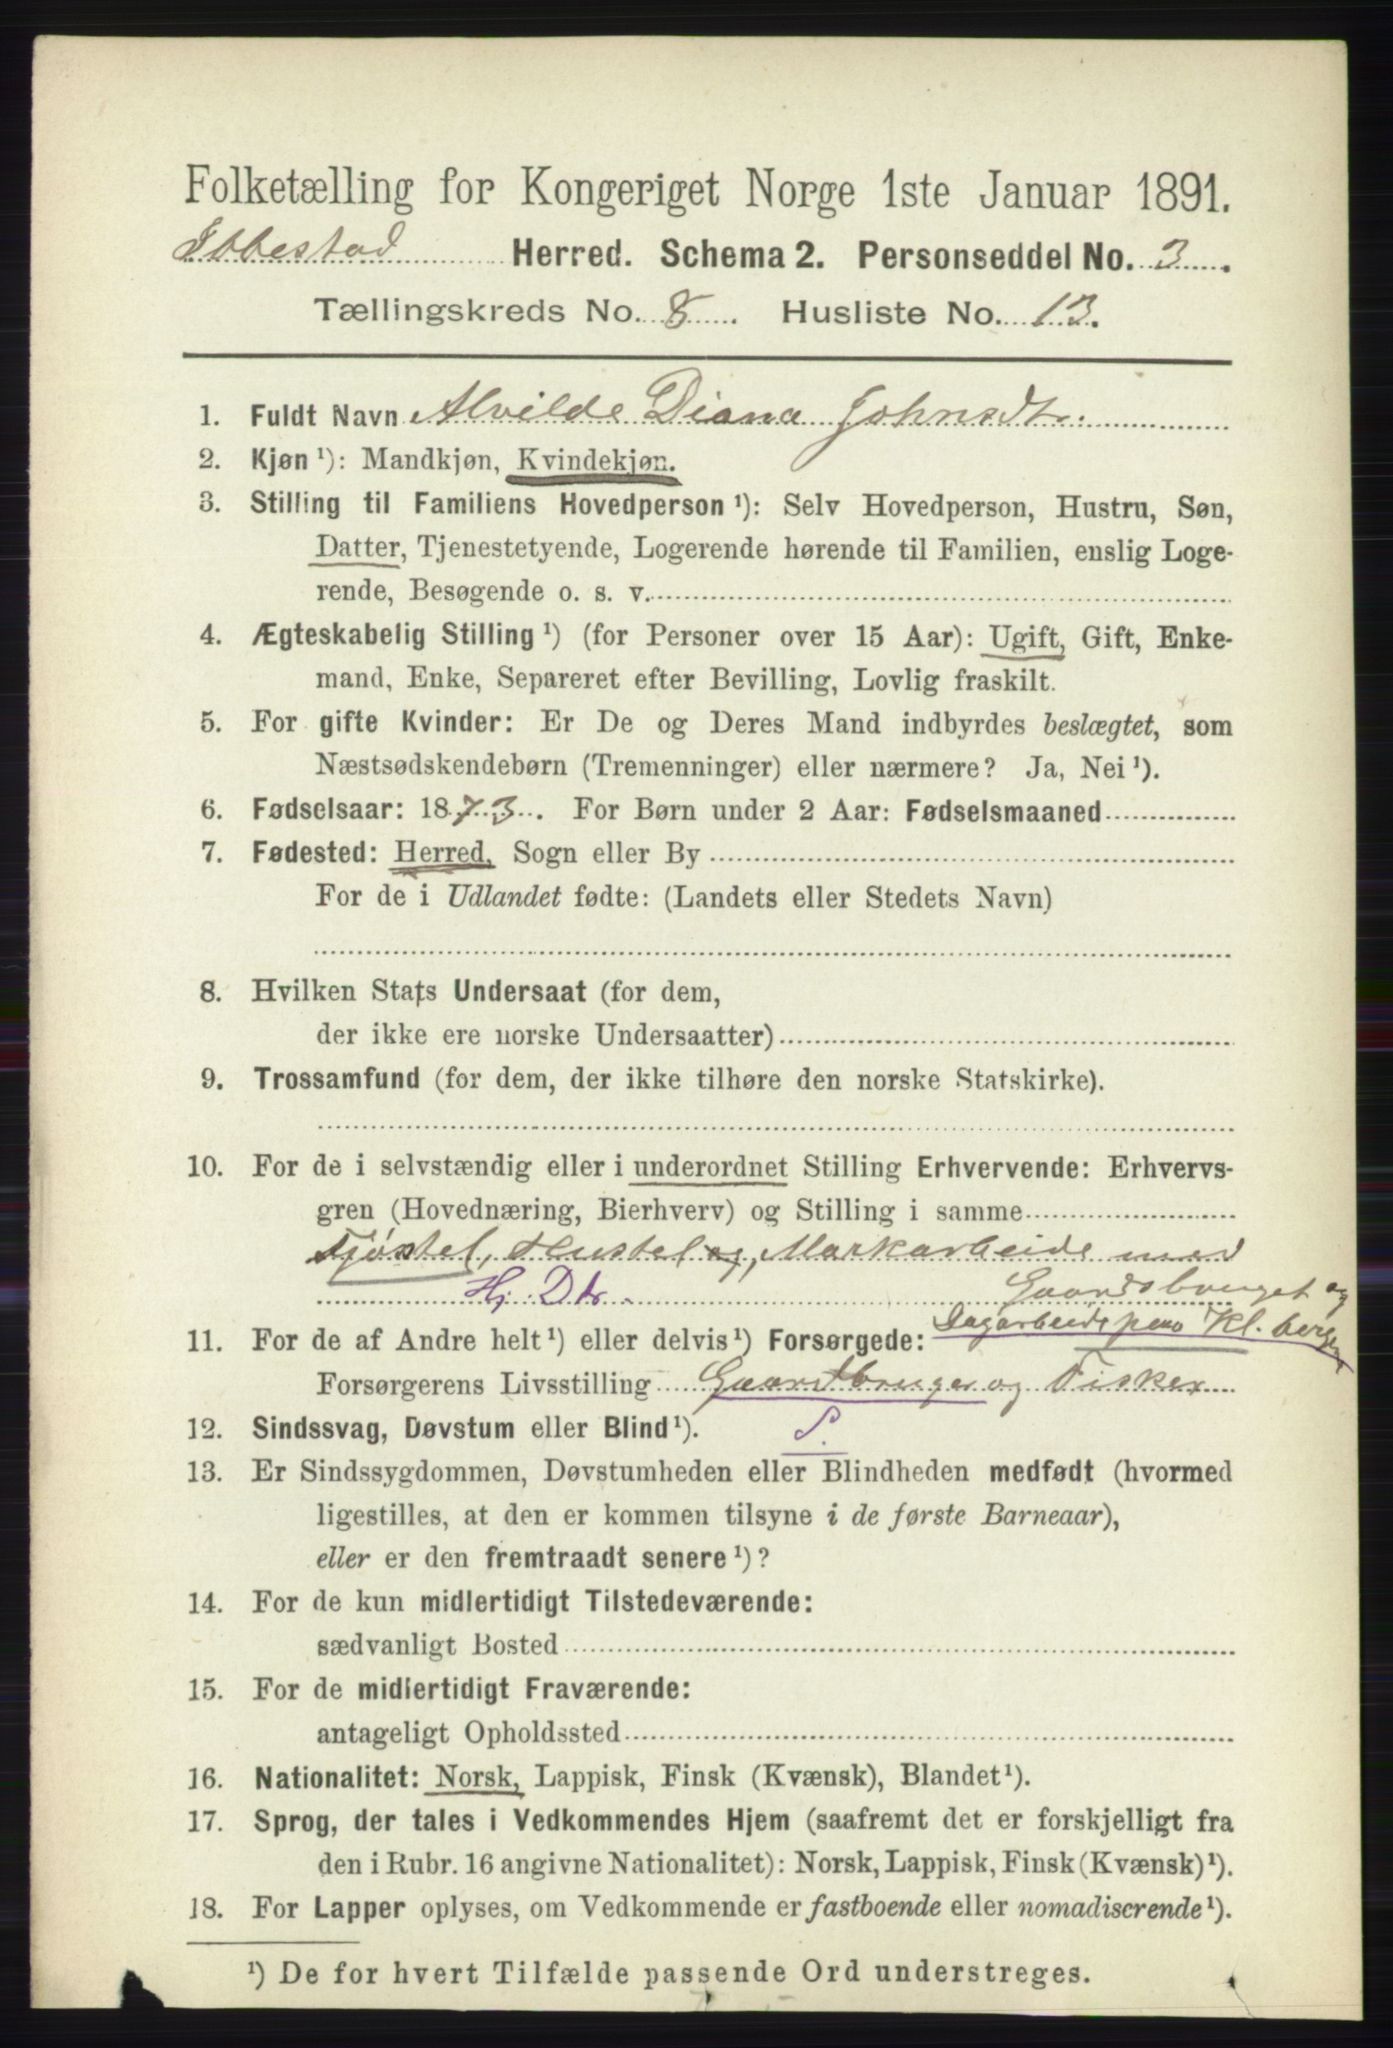 Folketælling for Kongeriget Norge 1ste Januar 1891.
Ibbestad Herred. Schema 2. Personseddel No. 3.
Tællingskreds No. 8. Husliste No. 13.
1. Fuldt Navn Alvilde Diana Johnsdtr.
2. Kjøn ¹): Mandkjøn, Kvindekjøn.
3. Stilling til Familiens Hovedperson ¹): Selv Hovedperson, Hustru, Søn,
Datter, Tjenestetyende, Logerende hørende til Familien, enslig Loge-
rende, Besøgende o. s. v.
4. Ægteskabelig Stilling ¹) (for Personer over 15 Aar): Ugift, Gift, Enke-
mand, Enke, Separeret efter Bevilling, Lovlig fraskilt.
5. For gifte Kvinder: Er De og Deres Mand indbyrdes beslægtet, som
Næstsødskendebørn (Tremenninger) eller nærmere? Ja, Nei ¹).
6. Fødselsaar: 1873. For Børn under 2 Aar: Fødselsmaaned
7. Fødested: Herred, Sogn eller By
For de i Udlandet fødte: (Landets eller Stedets Navn)
8. Hvilken Stats Undersaat (for dem,
der ikke ere norske Undersaatter)
9. Trossamfund (for dem, der ikke tilhøre den norske Statskirke).
10. For de i selvstændig eller i underordnet Stilling Erhvervende: Erhvervs-
gren (Hovednæring, Bierhverv) og Stilling i samme
Fjøstel, Hustel og, Markarbeide med
Hj. Dtr. Gaardsbruget og
11. For de af Andre helt ¹) eller delvis ¹) Forsørgede: Dagarbeide paa Kl.
Forsørgerens Livsstilling Gaardbruger og Fisker
12. Sindssvag, Døvstum eller Blind ¹).
13. Er Sindssygdommen, Døvstumheden eller Blindheden medfødt (hvormed
ligestilles, at den er kommen tilsyne i de første Barneaar),
eller er den fremtraadt senere ¹)?
14. For de kun midlertidigt Tilstedeværende:
sædvanligt Bosted
15. For de midlertidigt Fraværende:
antageligt Opholdssted
16. Nationalitet: Norsk, Lappisk, Finsk (Kvænsk), Blandet ¹).
17. Sprog, der tales i Vedkommendes Hjem (saafremt det er forskjelligt fra
den i Rubr. 16 angivne Nationalitet): Norsk, Lappisk, Finsk (Kvænsk) ¹).
18. For Lapper oplyses, om Vedkommende er fastboende eller nomadiserende ¹).
¹) De for hvert Tilfælde passende Ord understreges.